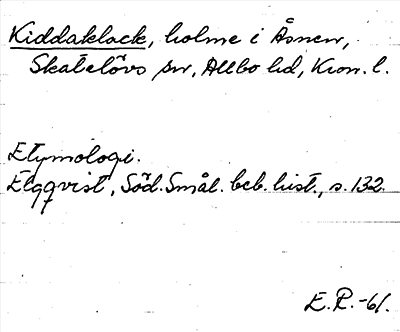 Kiddaklack, holme i Åsnen,
Skatelövs sn, Allbo hd, Kron. l.
Etymologi.
Elqqvist, Söd. Smål. beb. hist., s. 132.
E. P. -61.